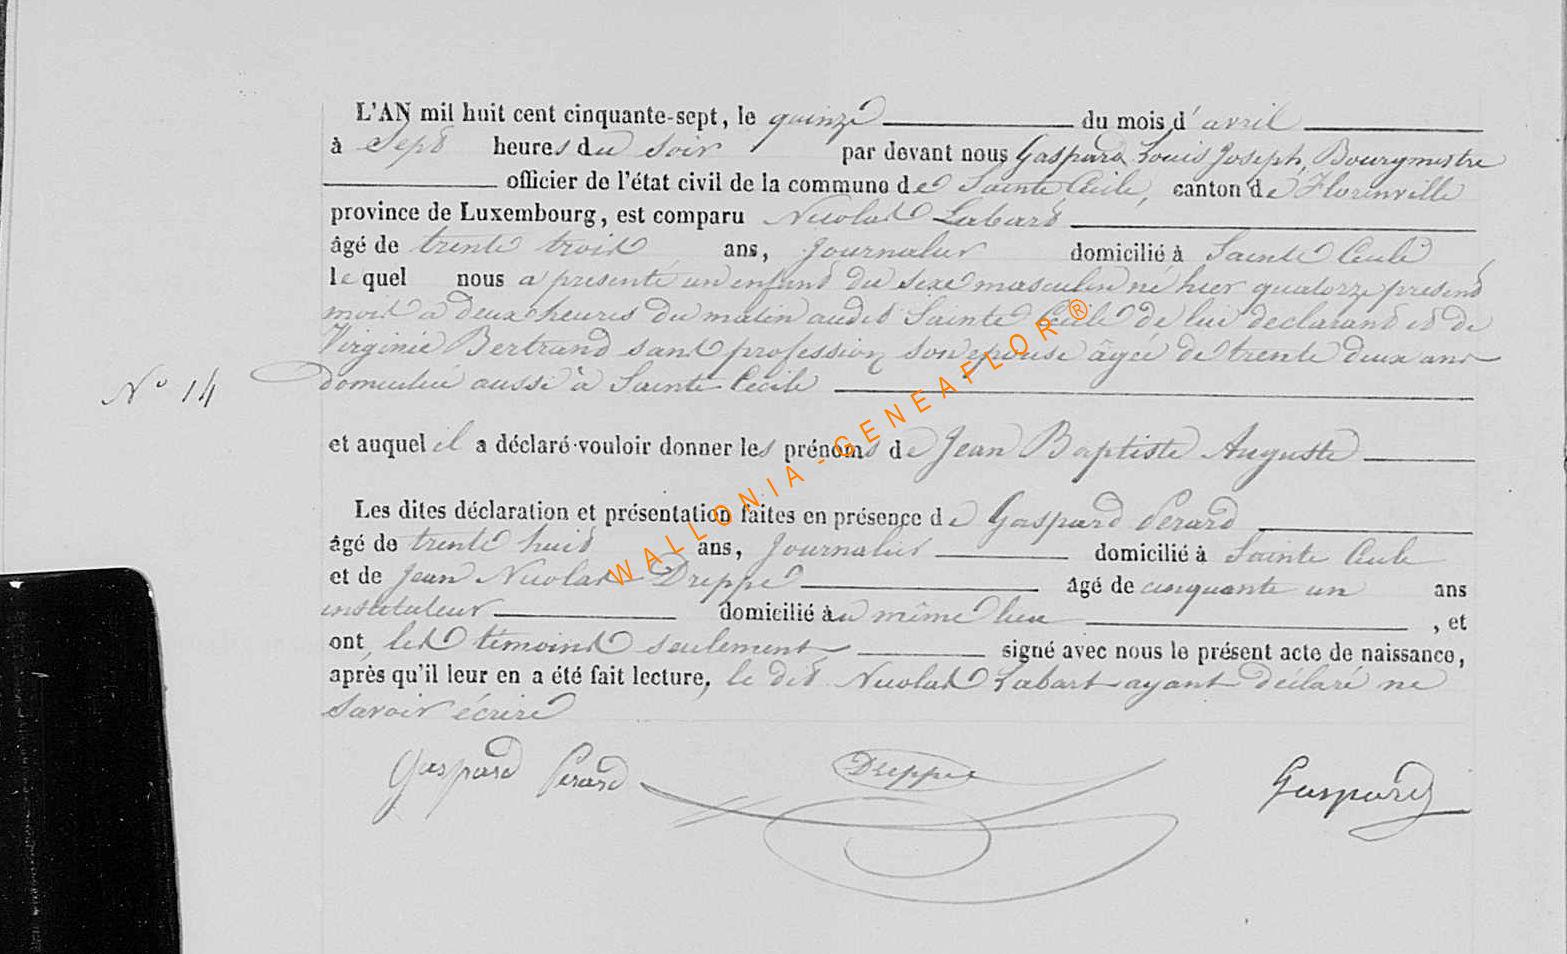 L'AN mil huit cent cinquante-sept, le quinze du mois d'avril
à Sept heures du soir par devant nous Gaspard Louis Joseph, Bourgmestre
officier de l'état civil de la commune de Sainte Cécile, canton de Florenville
province de Luxembourg, est comparu Nicolas Labart
âgé de trente trois ans, Journalier domicilié à Sainte Cécile
lequel nous a présenté un enfant du sexe masculin né hier quatorze présent
mois à deux heures du matin audit Sainte Cécile de lui déclarant et de
Virginie Bertrand sans profession son épouse âgée de trente deux ans
N° 14 domiciliée aussi à Sainte Cécile
et auquel il a déclaré vouloir donner les prénoms de Jean Baptiste Auguste
Les dites déclaration et présentation faites en présence de Gaspard Pérard
âgé de trente huit ans, Journalier domicilié à Sainte Cécile
et de Jean Nicolas Dreppe âgé de cinquante un ans
instituteur domicilié au même lieu , et
ont les témoins seulement signé avec nous le présent acte de naissance,
après qu'il leur en a été fait lecture, le dit Nicolas Labart ayant déclaré ne
savoir écrire
Gaspard Pérard Dreppe Gaspard
WALLONIA-GENEAFLOR®